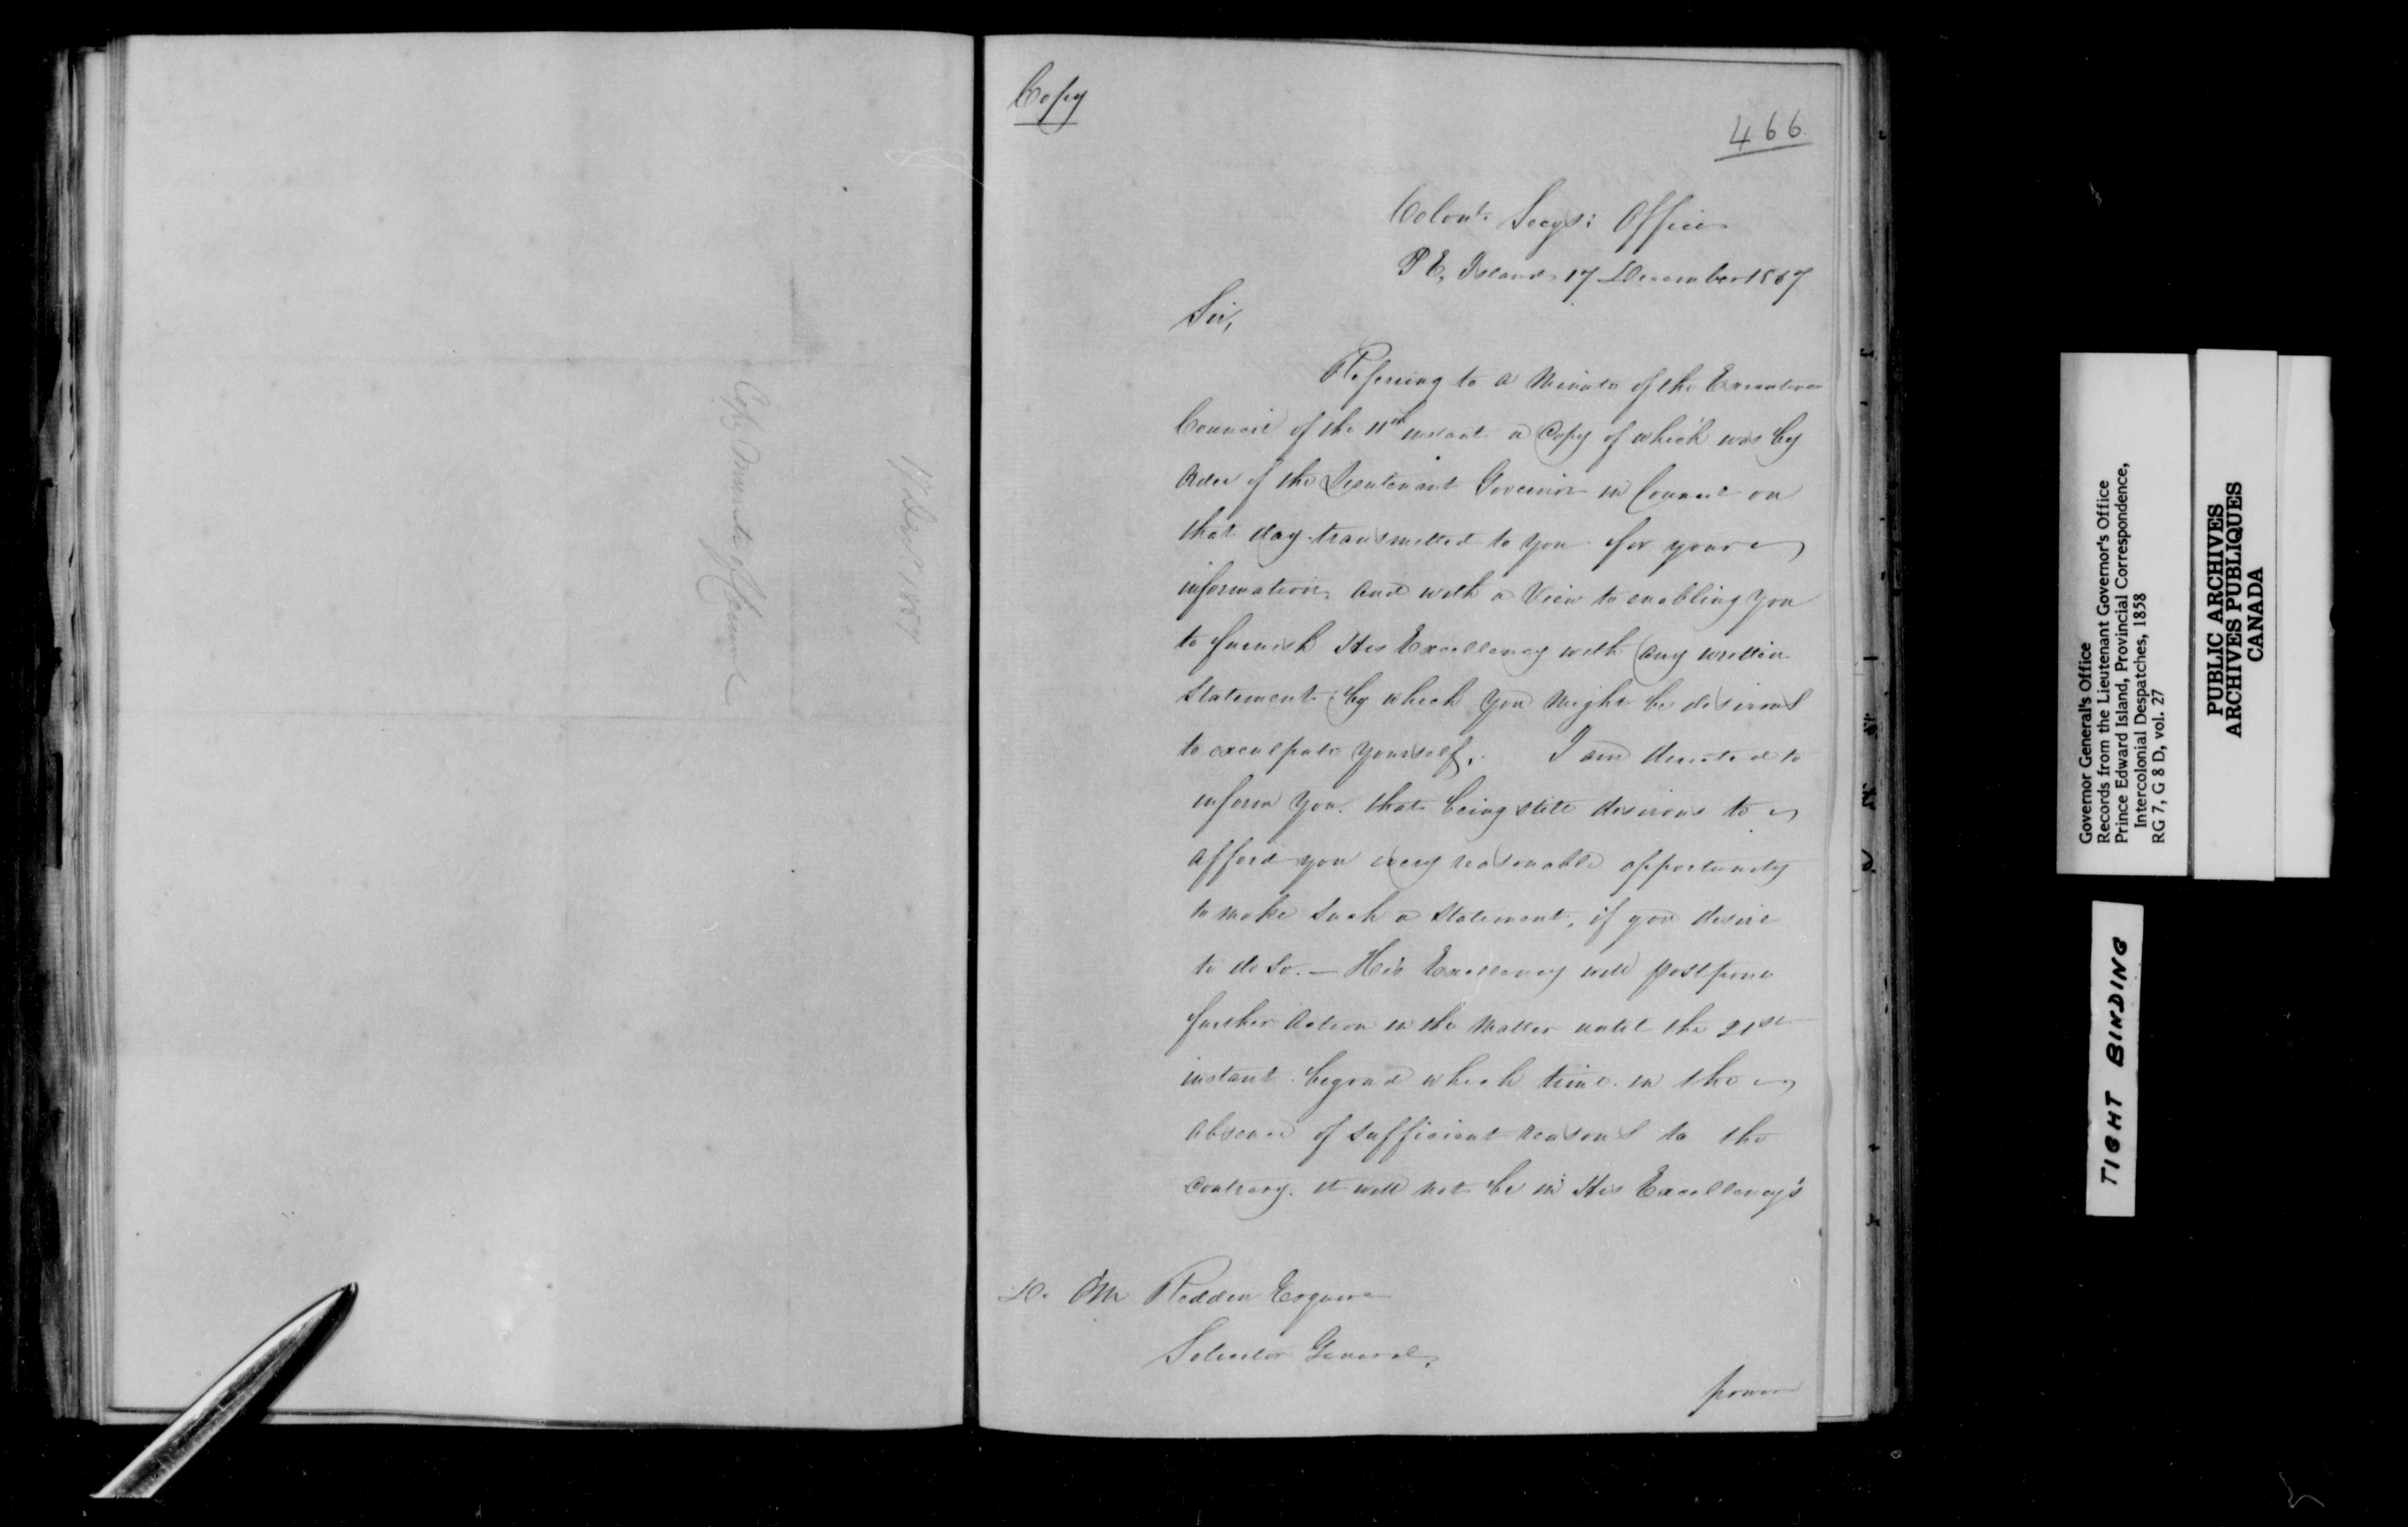 Copy Minute of Council
17 Dec 1857
Copy
466
Colonl. Secys: Office
P E, Island 17 December 1857
Sir,
Referring to a Minute of the Executive
Council of the 11th instant a Copy of which was by
Order of the Lieutenant Governor in Council on
that day transmitted to you for your
information, and with a View to enabling you
to furnish His Excellency with any written
Statement by which you might be desirous
to exculpate yourself, I am directed to
inform you that being still desirous to
afford you every reasonable opportunity
to make such a statement, if you desire
to do so. — His Excellency will postpone
further Action in the Matter until the 21st
instant beyond which time in the
absence of sufficient reasons to the
contrary. it will not be in His Excellency's
D. OM Redden Esquire
Solicitor General,
power
Governor General's Office
Records from the Lieutenant Governor's Office
Prince Edward Island, Provincial Correspondence,
Intercolonial Despatches, 1858
RG 7, G 8 D, vol. 27
PUBLIC ARCHIVES
ARCHIVES PUBLIQUES
CANADA
TIGHT BINDING